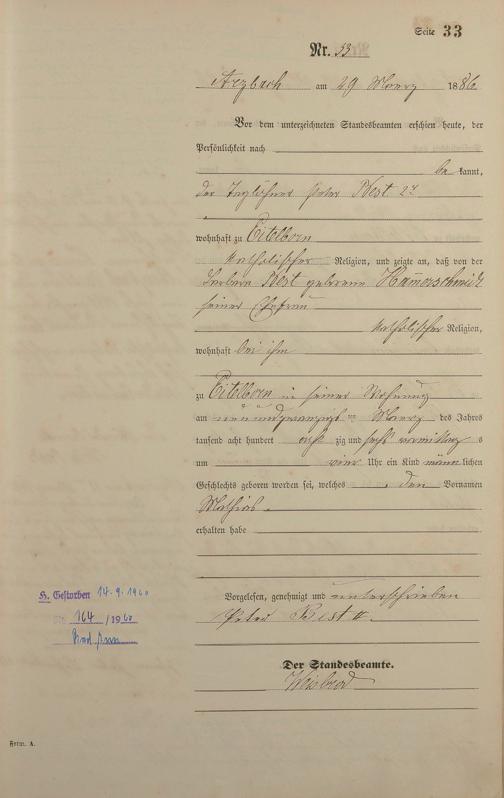 Seite 33
Nr. 33
Arzbach am 29 Maerz 1886
Vor dem unterzeichneten Standesbeamten erschien heute, der
Persönlichkeit nach
be kannt,
der Taglöhner Peter Best 2r
wohnhaft zu Eitelborn
katholischer Religion, und zeigte an, daß von der
Barbara Best geborene Hammerschmidt
seiner Ehefrau
katholischer Religion,
wohnhaft bei ihm
zu Eitelborn in seiner Wohnung
am neunundzwanzigsten Maerz des Jahres
tausend acht hundert acht zig und sechs vormittag s
um vier Uhr ein Kind männ lichen
Geschlechts geboren worden sei, welches den Vornamen
Mathias
erhalten habe
Vorgelesen, genehmigt und unterschrieben
Peter Best II.
Der Standesbeamte.
Weisbrod
H. Gestorben 14.9.1960
Nr. 164 / 1960
Form. A.